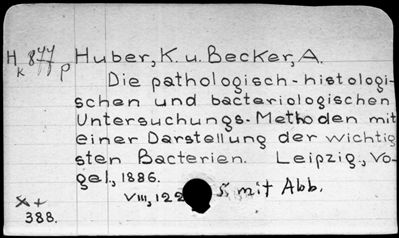 H 877 Huber, K. u. Becker, A.
k p
Die pathologisch-histologi-
schen und bacteriologischen
Untersuchungs-Methoden mit
einer Darstellung der wichtig
sten Bacterien. Leipzig., Vo-
gel., 1886.
VIII, 122 S. mit Abb.
388.